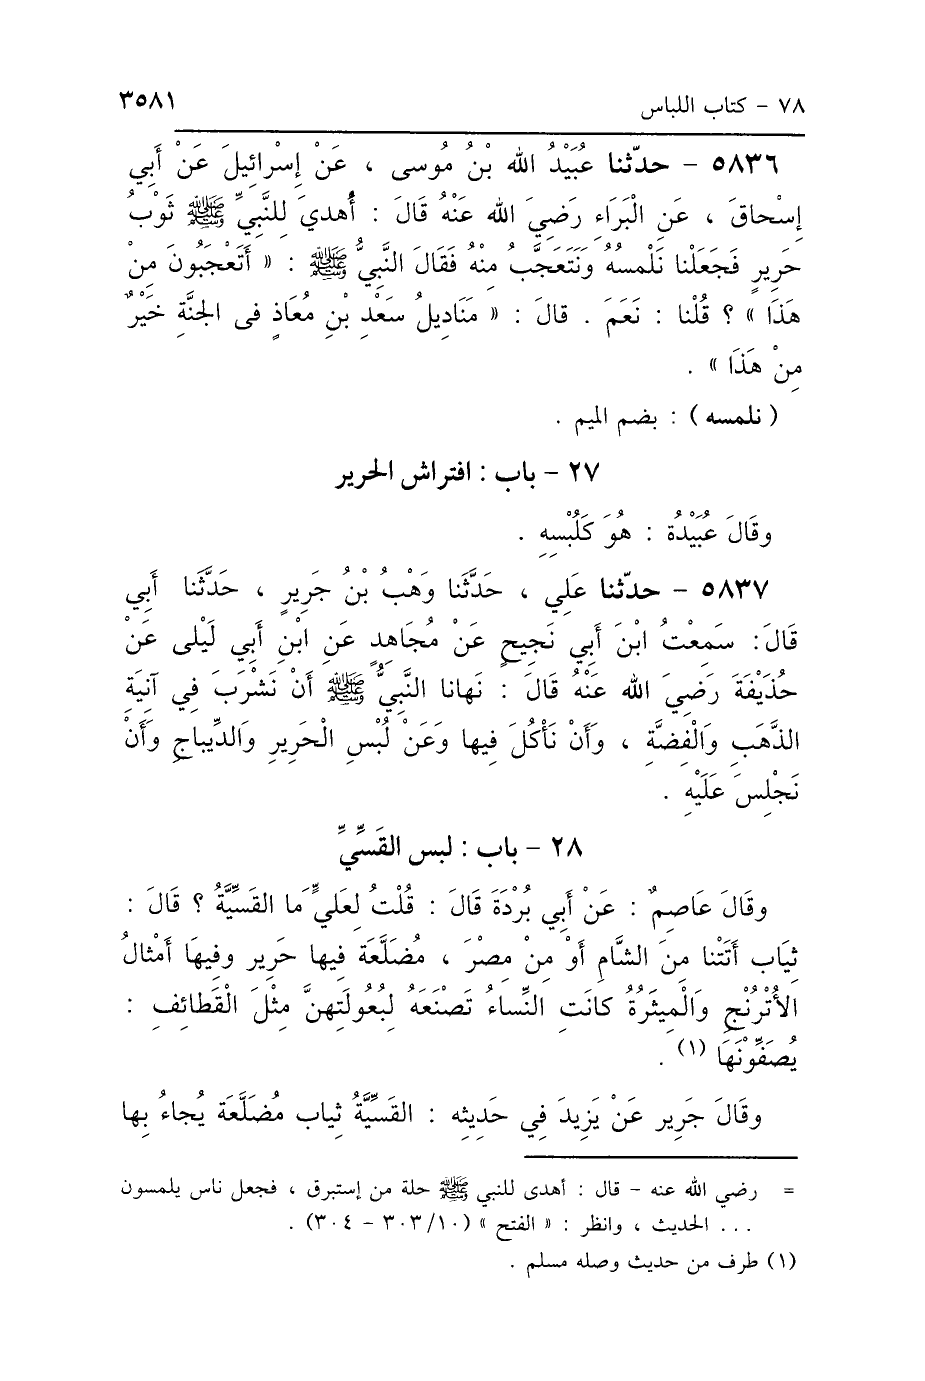 ٧٨ - كتاب اللباس ٣٥٨١
٥٨٣٦ - حدّثنا عُبَيْدُ الله بْنُ مُوسى ، عَنْ إِسْرائِيلَ عَنْ أَبي
إِسْحاقَ ، عَنِ الْبَرَاءِ رَضِيَ الله عَنْهُ قَالَ : أُهدِيَ لِلنَّبيِّ ﷺ ثَوْبُ
حَرِيرٍ فَجَعَلْنا نَلْمسُهُ وَنَتَعَجَّبُ مِنْهُ فَقَالَ النَّبيُّ ﷺ : « أَتَعْجَبُونَ مِنْ
هَذَا » ؟ قُلْنا : نَعَمَ . قالَ : « مَنَاديلُ سَعْدِ بْنِ مُعَاذٍ فى الجنَّةِ خَيْرٌ
مِنْ هَذَا » .
( نلمسه ) : بضم الميم .
٢٧ - باب : افتراش الحرير
وقَالَ عُبَيْدُة : هُوَ كَلُبْسِهِ .
٥٨٣٧ - حدّثنا عَلِي ، حَدَّثَنا وَهْبُ بْنُ جَرِيرٍ ، حَدَّثَنا أَبِي
قَالَ: سَمِعْتُ ابْنَ أَبي نَجيحٍ عَنْ مُجَاهِدٍ عَنِ ابْنِ أَبي لَيْلى عَنْ
حُذَيْفَةَ رَضِيَ الله عَنْهُ قَالَ : نَهانا النَّبيُّ ﷺ أَنْ نَشْرَبَ في آنِيَةِ
الذَّهَبِ وَالْفِضَّةِ ، وَأَنْ نَأْكُلَ فِيها وَعَنْ لُبْسِ الْحَرِيرِ وَالدِّيباجِ وَأَنْ
نَجْلِسَ عَلَيْهِ .
٢٨ - باب : لبس القَسِّيِّ
وقَالَ عَاصِمٌ : عَنْ أَبي بُرْدَةَ قَالَ : قُلْتُ لِعَليٍّ مَا القَسِّيَّةُ ؟ قَالَ :
ثِيَاب أَتَتْنا مِنَ الشَّامِ أَوْ مِنْ مِصْرَ ، مُضَلَّعَة فِيها حَرِير وفِيهَا أَمْثالُ
الأُتْرُنْجِ وَالْمِيثَرُةُ كانَتِ النِّساءُ تَصْنَعَهُ لِبُعُولَتِهِنَّ مِثْلَ الْقَطائِفِ :
يُصَفِّوْنَهَا (١) .
وقَالَ جَرِير عَنْ يَزِيدَ فِي حَدِيثِه : القَسِّيَّةُ ثِياب مُضَلَّعَة يُجاءُ بِها
= رضي الله عنه - قال : أهدى للنبي ﷺ حلة من إستبرق ، فجعل ناس يلمسون
... الحديث ، وانظر : « الفتح » (١٠/ ٣٠٣ - ٣٠٤) .
(١) طرف من حديث وصله مسلم .